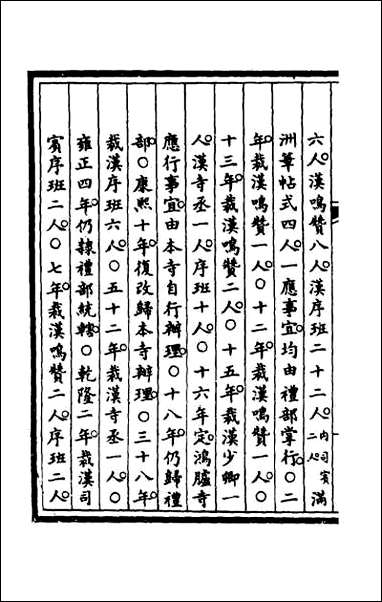 六人。漢鳴贊八人。漢序班二十二人。內司賓二人。滿
洲筆帖式四人。一應事宜。均由禮部掌行。○二
年。裁漢鳴贊一人。○十二年。裁漢鳴贊一人。○
十三年。裁漢鳴贊二人。○十五年。裁漢少卿一
人。漢寺丞一人。序班十人。○十六年。定。鴻臚寺
應行事宜。由本寺自行辦理。○十八年。仍歸禮
部。○康熙十年。復改歸本寺辦理。○三十八年。
裁漢序班六人。○五十二年。裁漢寺丞一人。○
雍正四年。仍隸禮部統轄。○乾隆二年。裁漢司
賓序班二人。○七年。裁漢鳴贊二人。序班二人。